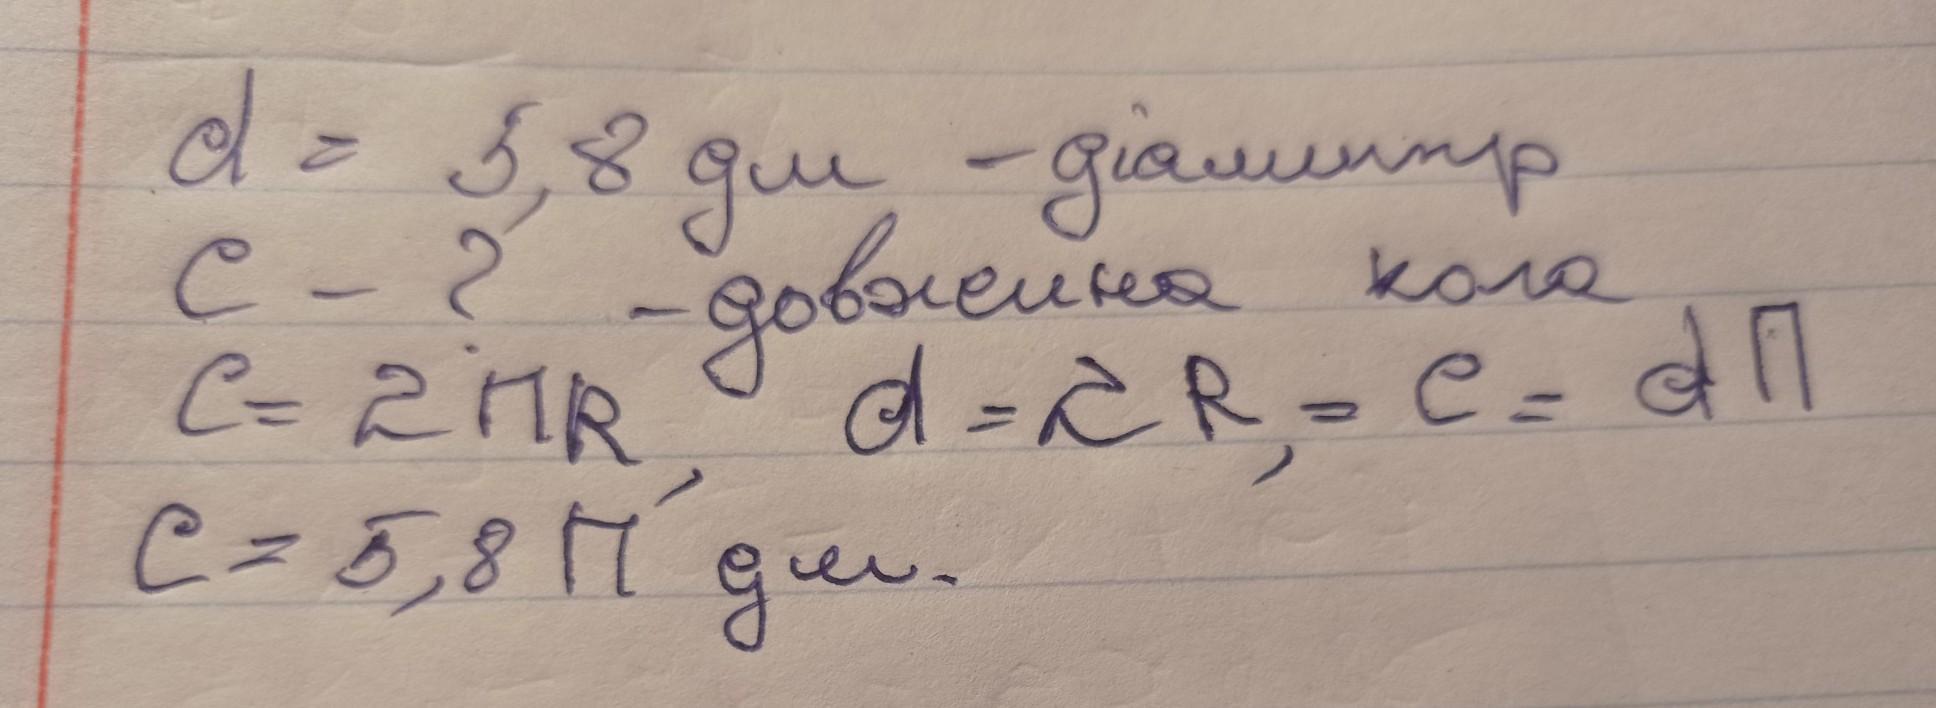 d = 5,8 дм - діаметр
C - ? - довжина кола
C = 2ПR, d = 2R, = C = dП
C = 5,8 П дм.